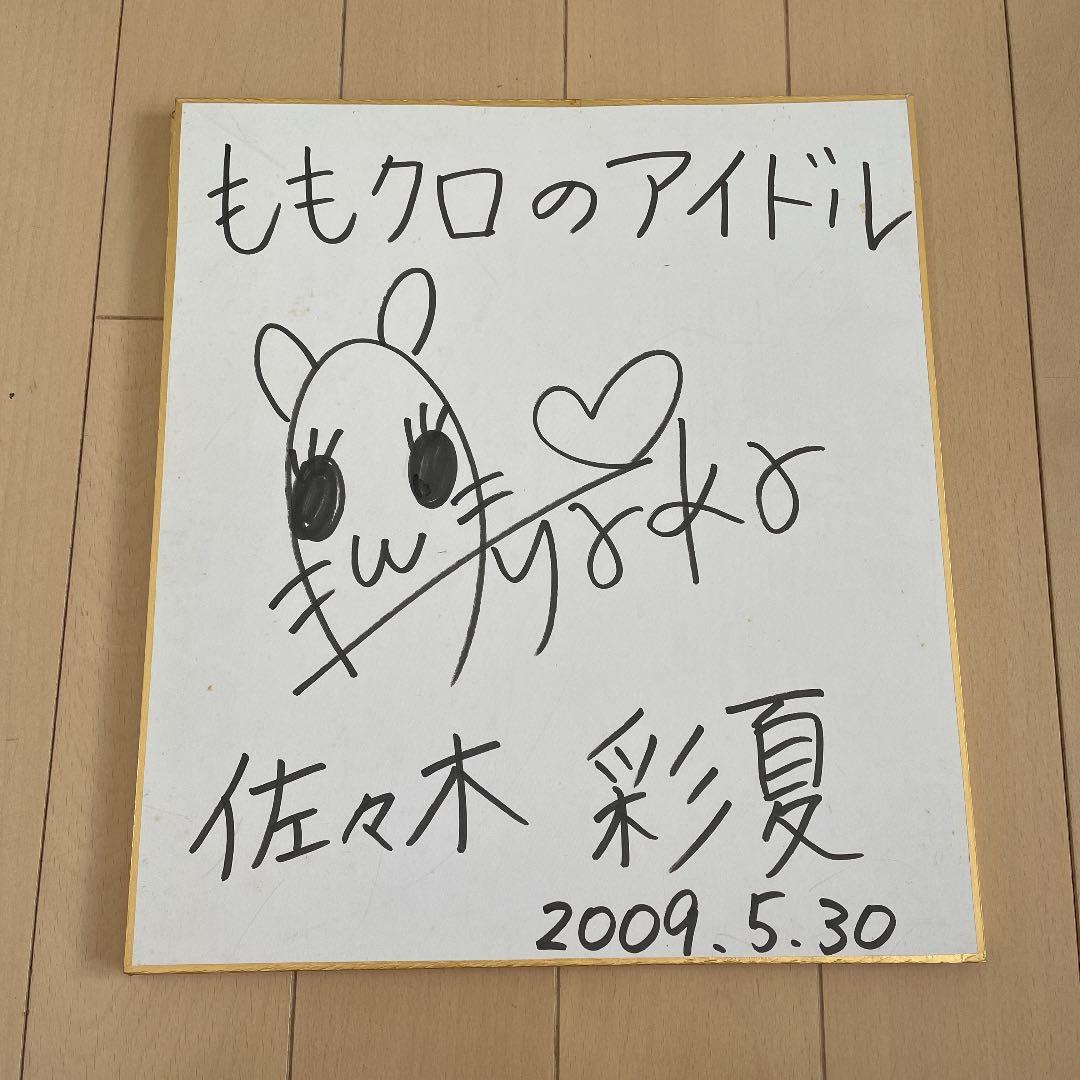 ももクロのアイドル
ayaka
佐々木 彩夏
2009.5.30